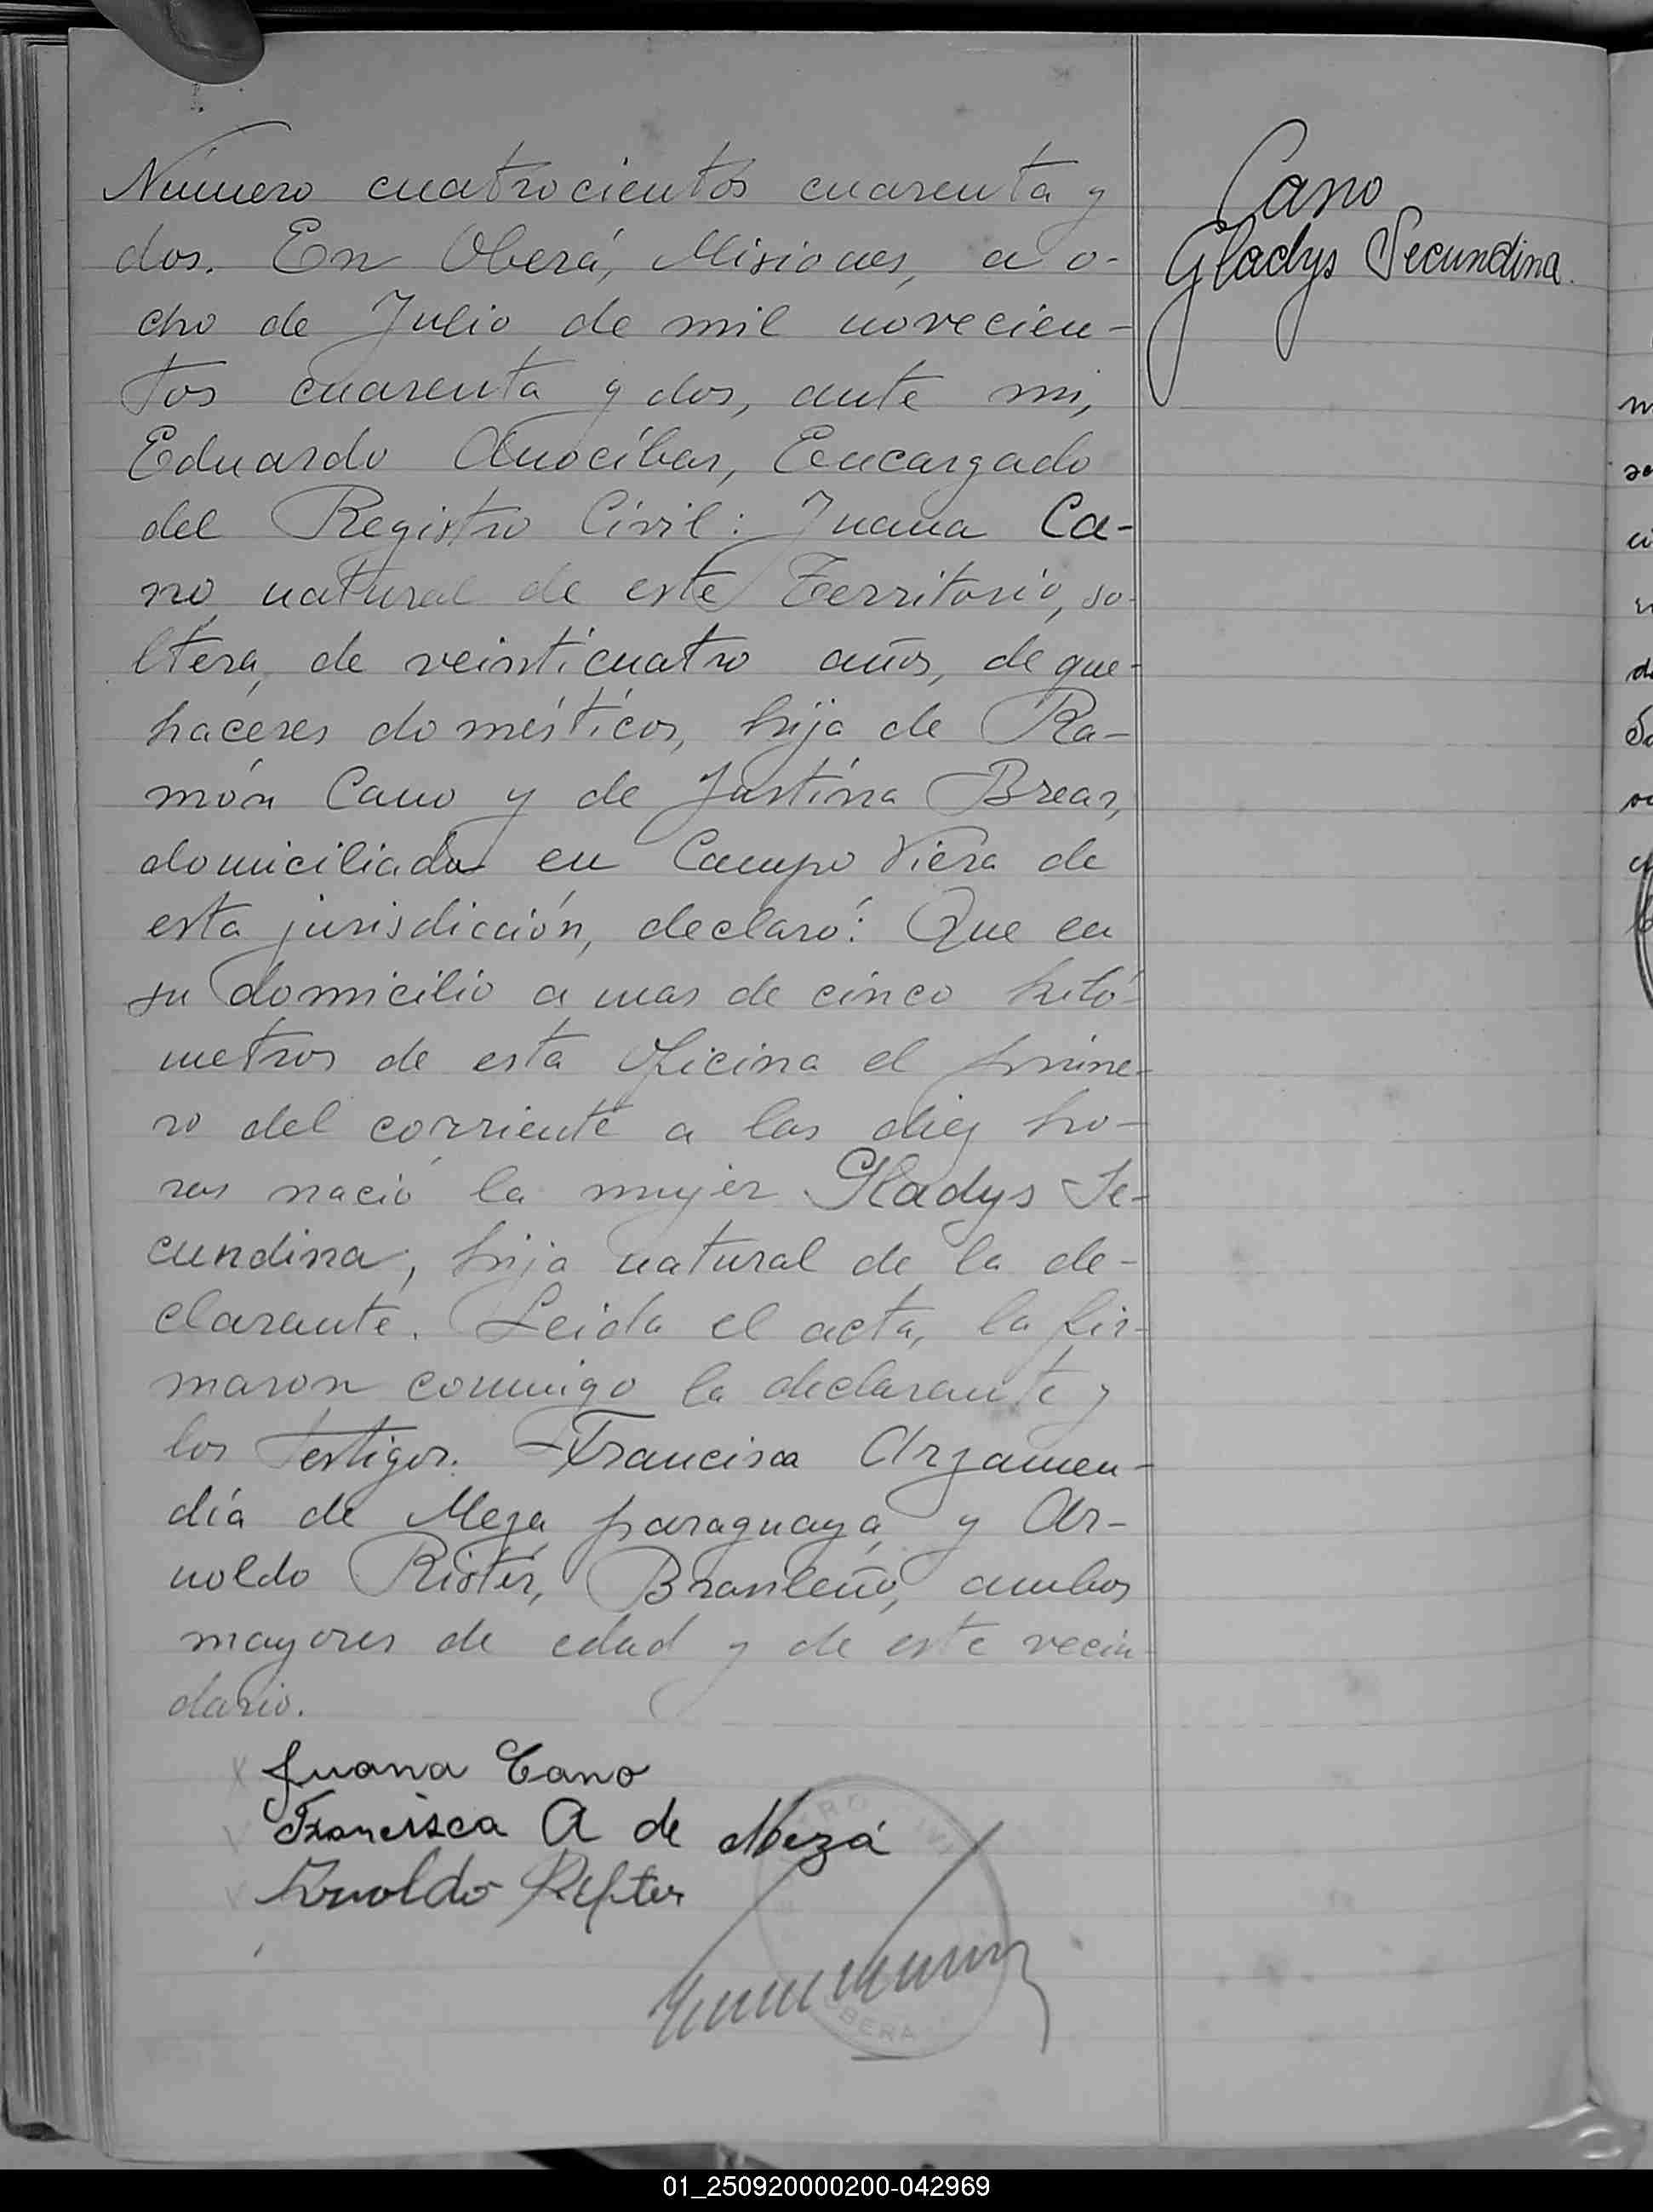 Número cuatrocientos cuarenta y
dos. En Oberá, Misiones, a o-
cho de Julio de mil novecien-
tos cuarenta y dos, ante mi,
Eduardo Anocíbar, Encargado
del Registro Civil: Juana Ca-
no, natural de este Territorio, so-
ltera, de veinticuatro años, de que-
haceres domésticos, hija de Ra-
món Cano y de Justina Brear,
domiciliada en Campo Viera de
esta jurisdicción, declaró: Que en
su domicilio a mas de cinco kiló-
metros de esta Oficina el prime-
ro del corriente a las diez ho-
ras nació la mujer Gladys Se-
cundina, hija natural de la de-
clarante. Leida el acta, la fir-
maron conmigo la declarante y
los testigos. Francisca Arzamen-
día de Meza, paraguaya, y Ar-
noldo Rister, Brasileño, ambos
mayores de edad y de este vecin-
dario.
Juana Cano
Francisca A de Mezá
Arnoldo
OBERA
Cano
Gladys Secundina.
01_250920000200-042969